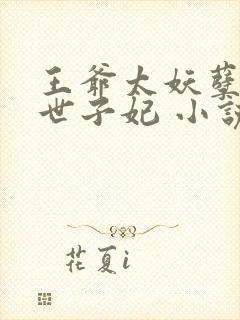 王爷太妖孽
世子妃 小说
花夏i